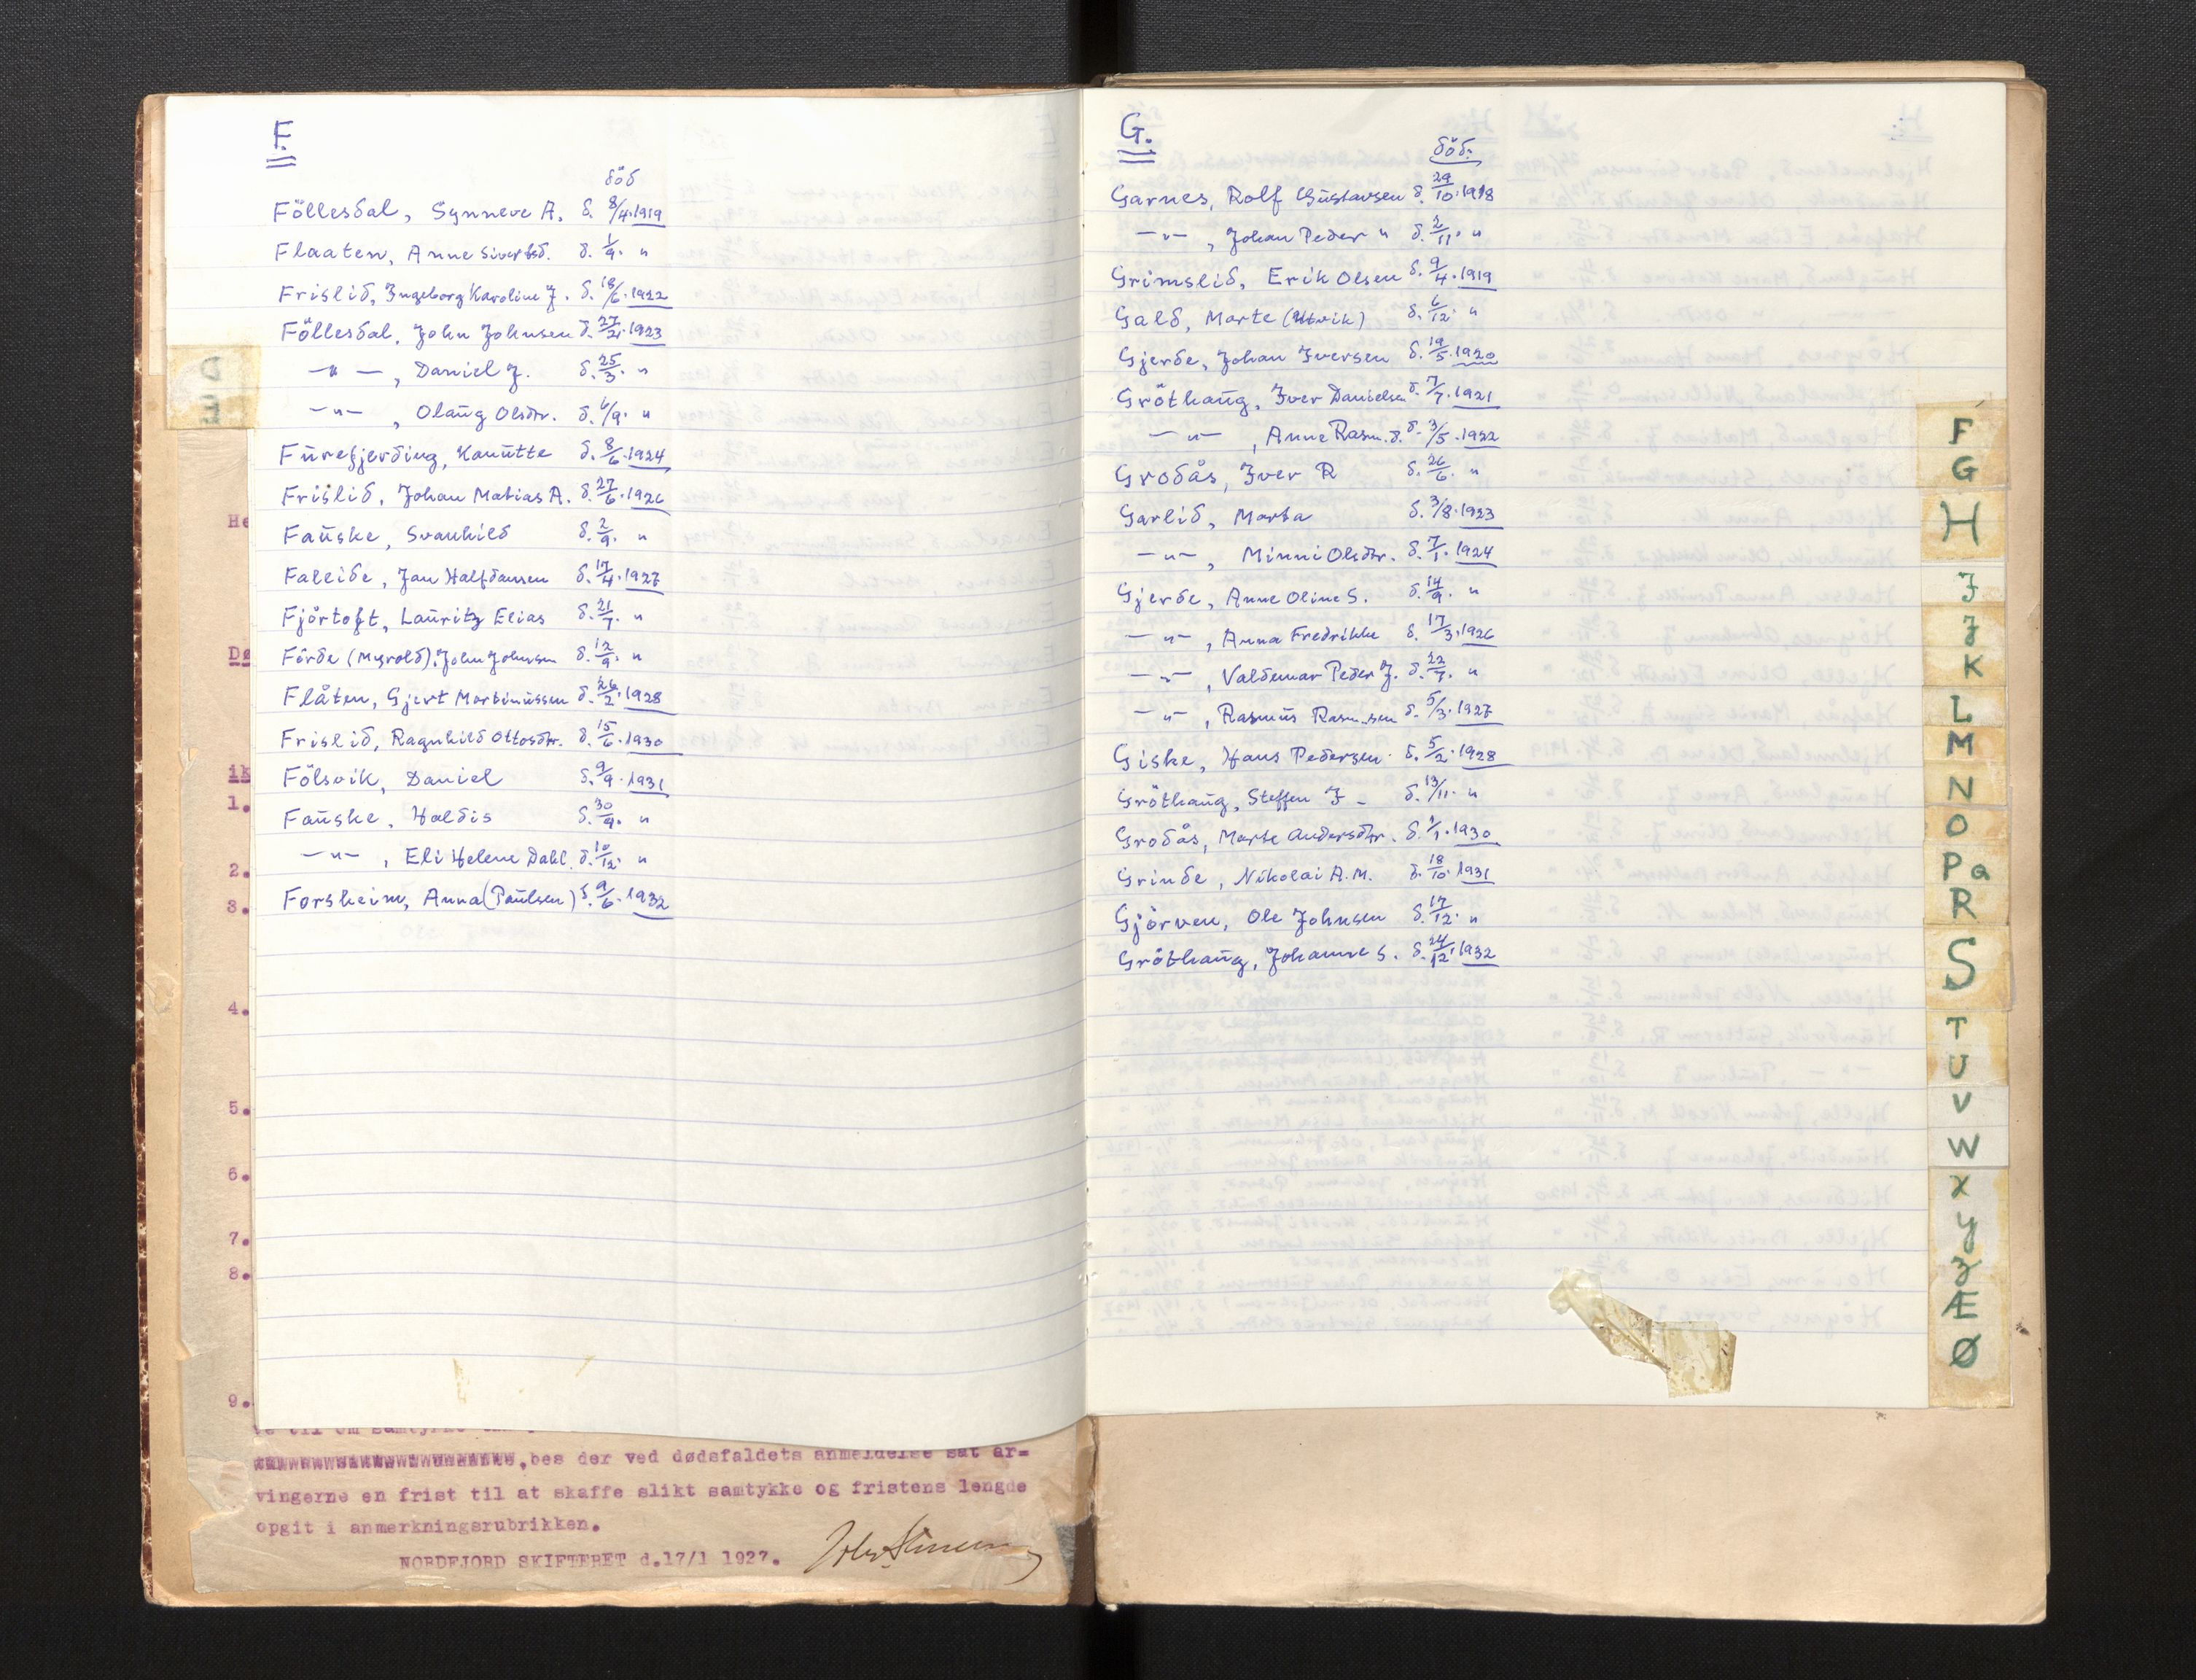 F.
död
Föllesdal, Synneve A. d. 8/4. 1919
Flaaten, Anne Sivertsd. d. 1/9. "
Frislid, Ingeborg Karoline J. d. 18/6. 1922
Föllesdal, John Johnsen d. 27/2. 1923
—"—, Daniel J. d. 25/3. "
—"—, Olaug Olsdtr. d. 6/9. "
Furefjerding, Kanutte d. 8/6. 1924
Frislid, Johan Matias A. d. 27/6. 1926
Fauske, Svanhild d. 2/9. "
Faleide, Jan Halfdansen d. 17/4. 1927
Fjörtoft, Lauritz Elias d. 21/7. "
Förde (Myrold), John Johnsen d. 12/9. "
Flåten, Gjert Martinussen d. 26/2. 1928
Frislid, Ragnhild Ottosdtr. d. 15/6. 1930
Fölsvik, Daniel d. 9/9. 1931
Fauske, Haldis d. 30/9. "
—"—, Eli Helene Dahl. d. 10/12. "
Forsheim, Anna (Paulsen) d. 9/6. 1932
He
Dø
ik
1.
2.
3.
4.
5.
6.
7.
8.
9.
bes der ved dødsfaldets anmeldelse sat ar=
vingerne en frist til at skaffe slikt samtykke og fristens lengde
opgit i anmerkningsrubrikken.
NORDFJORD SKIFTERET d.17/1 1927.
G.
död:
Garnes, Rolf Gustavsen d. 29/10. 1918
—"—, Johan Peder " d. 2/11. "
Grimslid, Erik Olsen d. 9/4. 1919
Gald, Marte (Utvik) d. 6/12. "
Gjerde, Johan Iversen d. 19/5. 1920
Gröthaug, Iver Danielsen d. 7/7. 1921
—"—, Anne Rasm.d. d. 3/5. 1922
Grodås, Iver R d. 26/6. "
Garlid, Marta d. 3/8. 1923
—"—, Minni Olsdtr. d. 7/1. 1924
Gjerde, Anne Oline S. d. 14/9. "
—"—, Anna Fredrikke d. 17/3. 1926
—"—, Valdemar Peder J. d. 22/7. "
—"—, Rasmus Rasm.sen d. 5/3. 1927
Giske, Hans Pedersen. d. 5/2. 1928
Gröthaug, Steffen J - d. 13/11. "
Grodås, Marte Andersdtr. d. 1/1. 1930
Grinde, Nikolai A.M. d. 18/10. 1931
Gjörven, Ole Johnsen d. 17/12. "
Gröthaug, Johanne S. d. 24/12. 1932
F
G
H
I
J
K
L
M
N
O
Pa
R
S
T
U
V
W
X
Y
Z
Æ
Ø